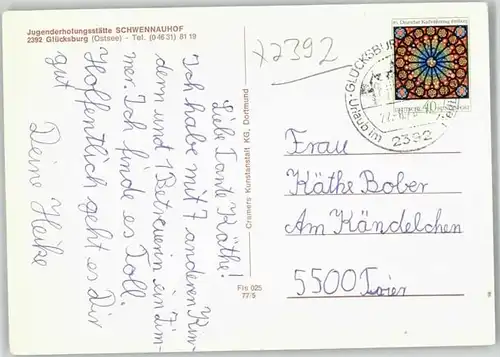 Jugenderholungsstätte SCHWENNAUHOF
2392 Glücksburg (Ostsee) - Tel. (0 46 31) 81 19
Liebe Tante Käthe!
Ich habe mit 7 anderen Kin-
dern und 1 Betreuerin ein Zim-
mer. Ich finde es Toll.
Hoffentlich geht es Dir
gut
Deine Heike
Cramers Kunstanstalt KG, Dortmund
Fls 025
77/5
x2392
GLÜCKSBURG
Urlaub im
2392
40
Frau
Käthe Bober
Am Kändelchen
5500 Trier